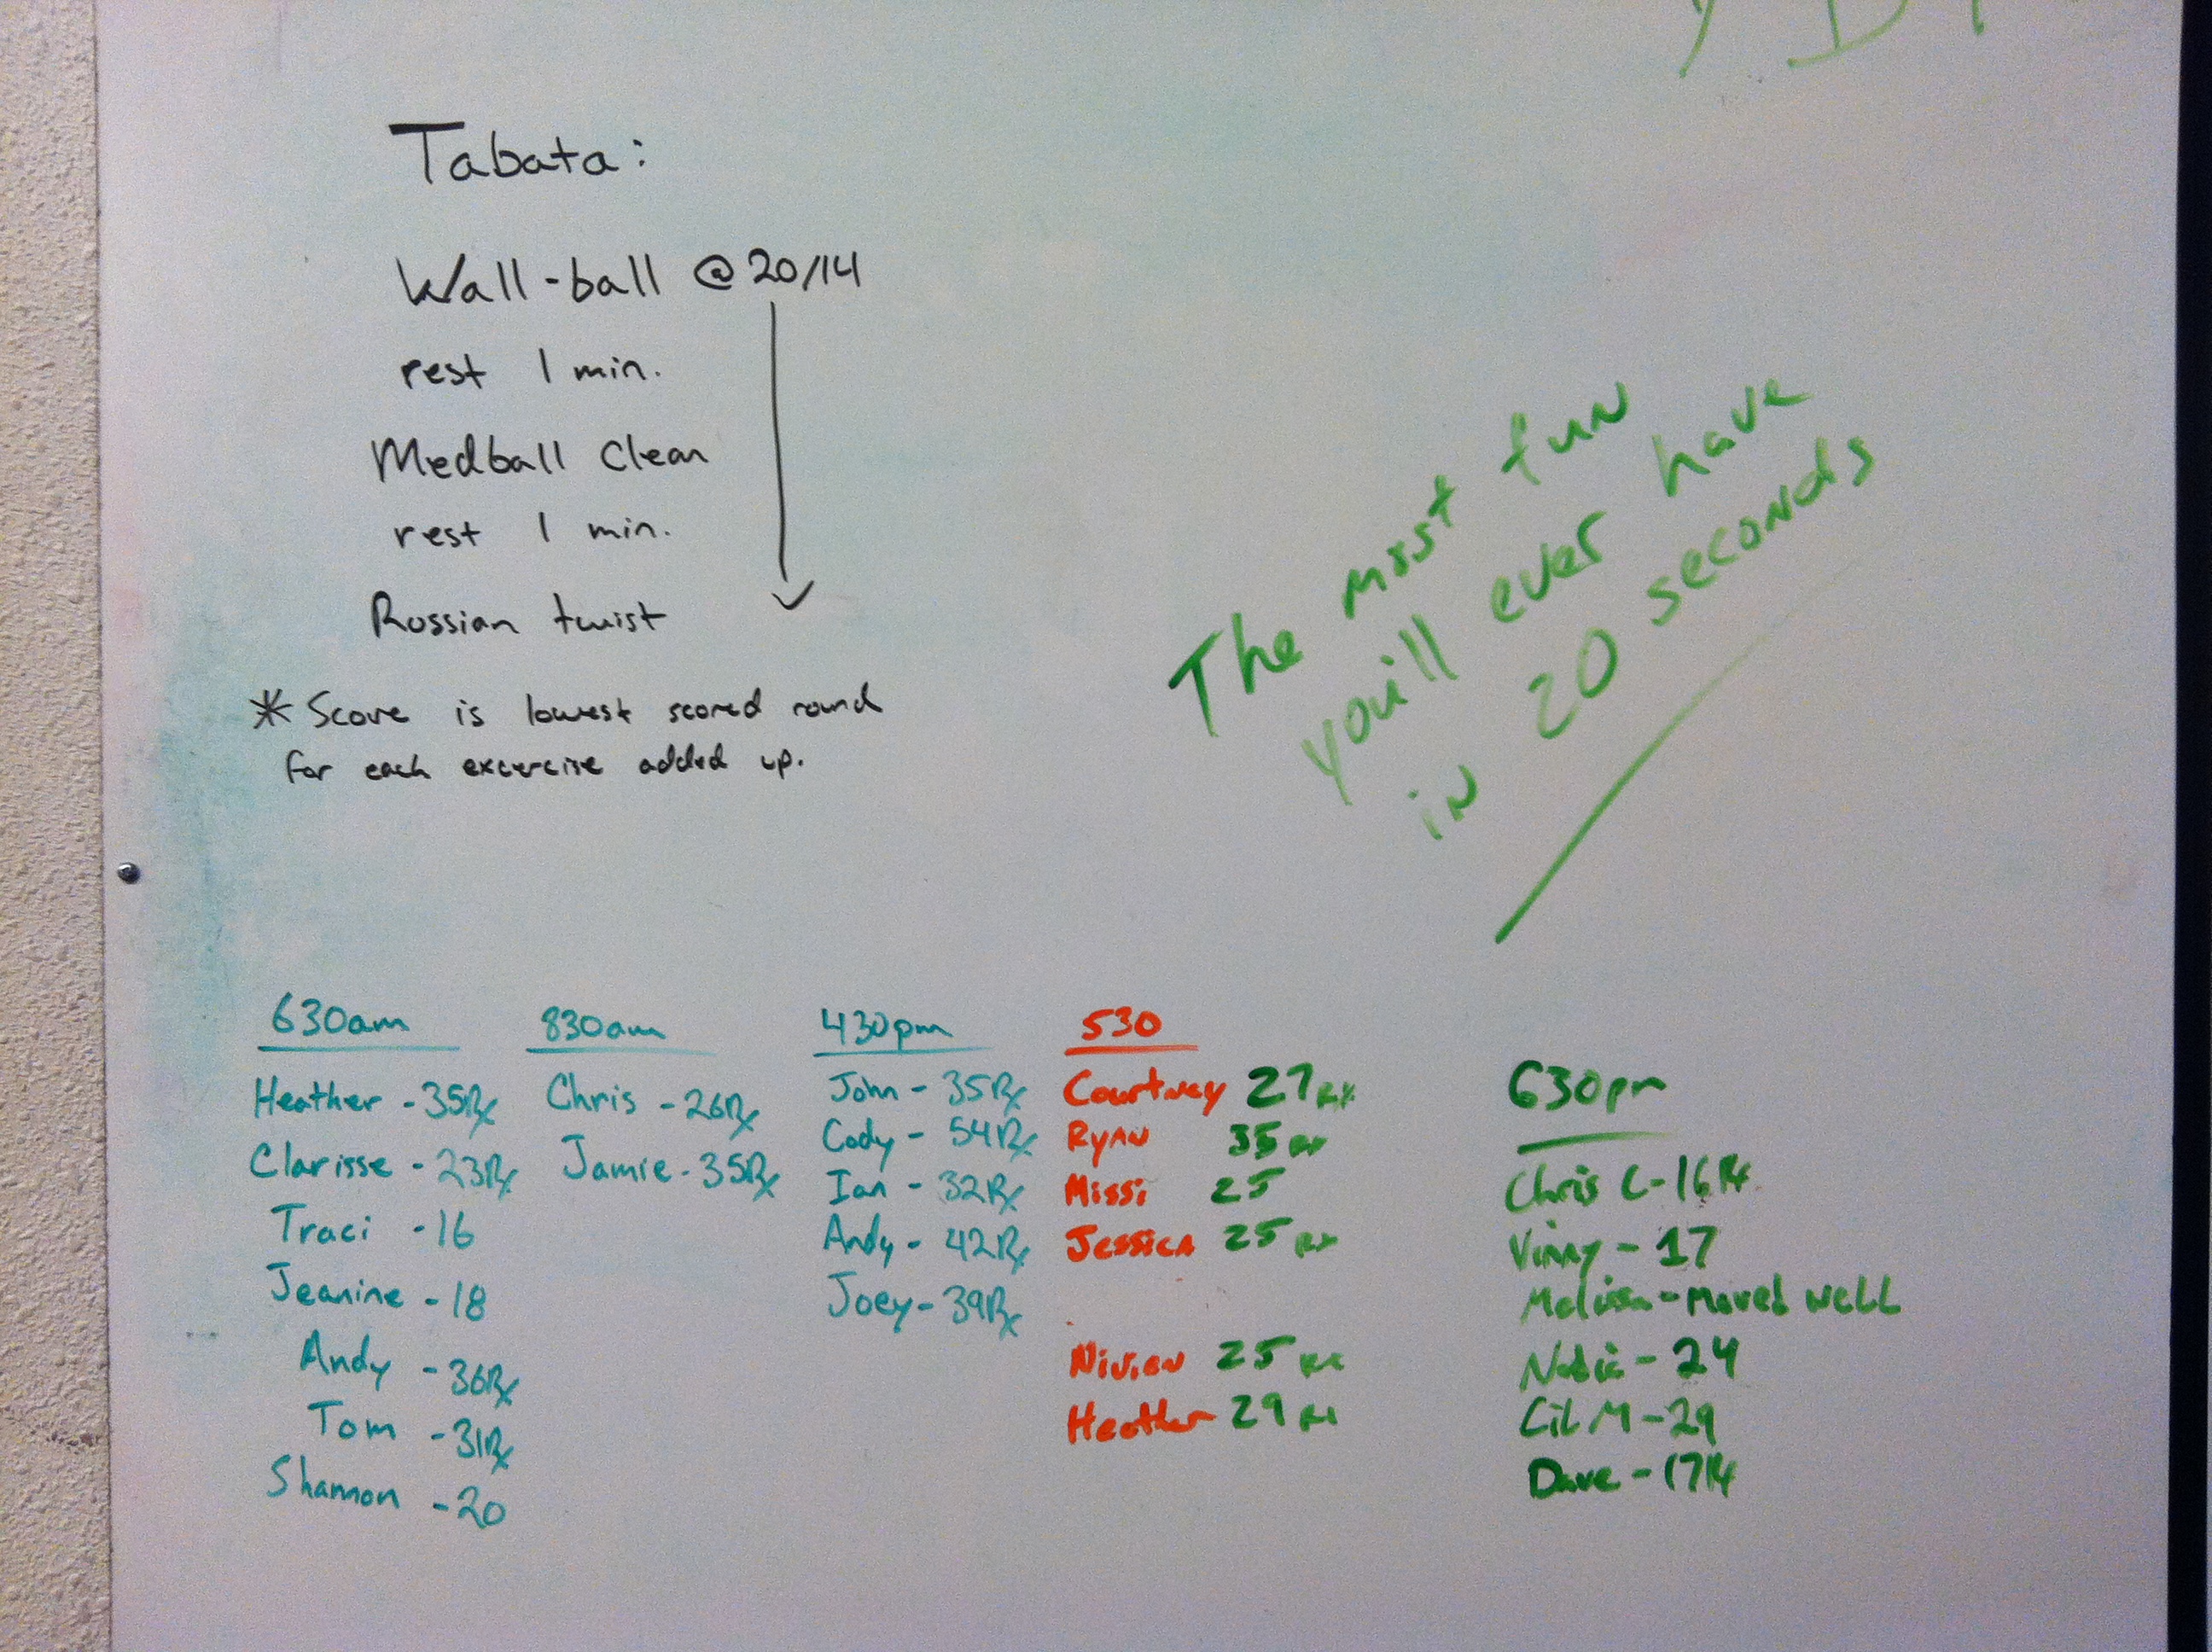 Tabata:
Wall-ball @ 20/14
rest 1 min.
Medball Clean
rest 1 min.
Russian twist
* Score is lowest scored round
for each excercise added up.
The most fun
you'll ever have
in 20 seconds
630am
Heather - 35Rx
Clarisse - 23Rx
Traci - 16
Jeanine - 18
Andy - 36Rx
Tom - 31Rx
Shannon - 20
830am
Chris - 26Rx
Jamie - 35Rx
430pm
John - 35Rx
Cody - 54Rx
Ian - 32Rx
Andy - 42Rx
Joey - 39Rx
530
Courtney 27 Rx
Ryan 35 Rx
Missi 25
Jessica 25 Rx
Nivien 25 Rx
Heather 29 Rx
630pm
Chris C - 16
Vinny - 17
Melissa - Moved well
- 24
M - 29
Dave - 17